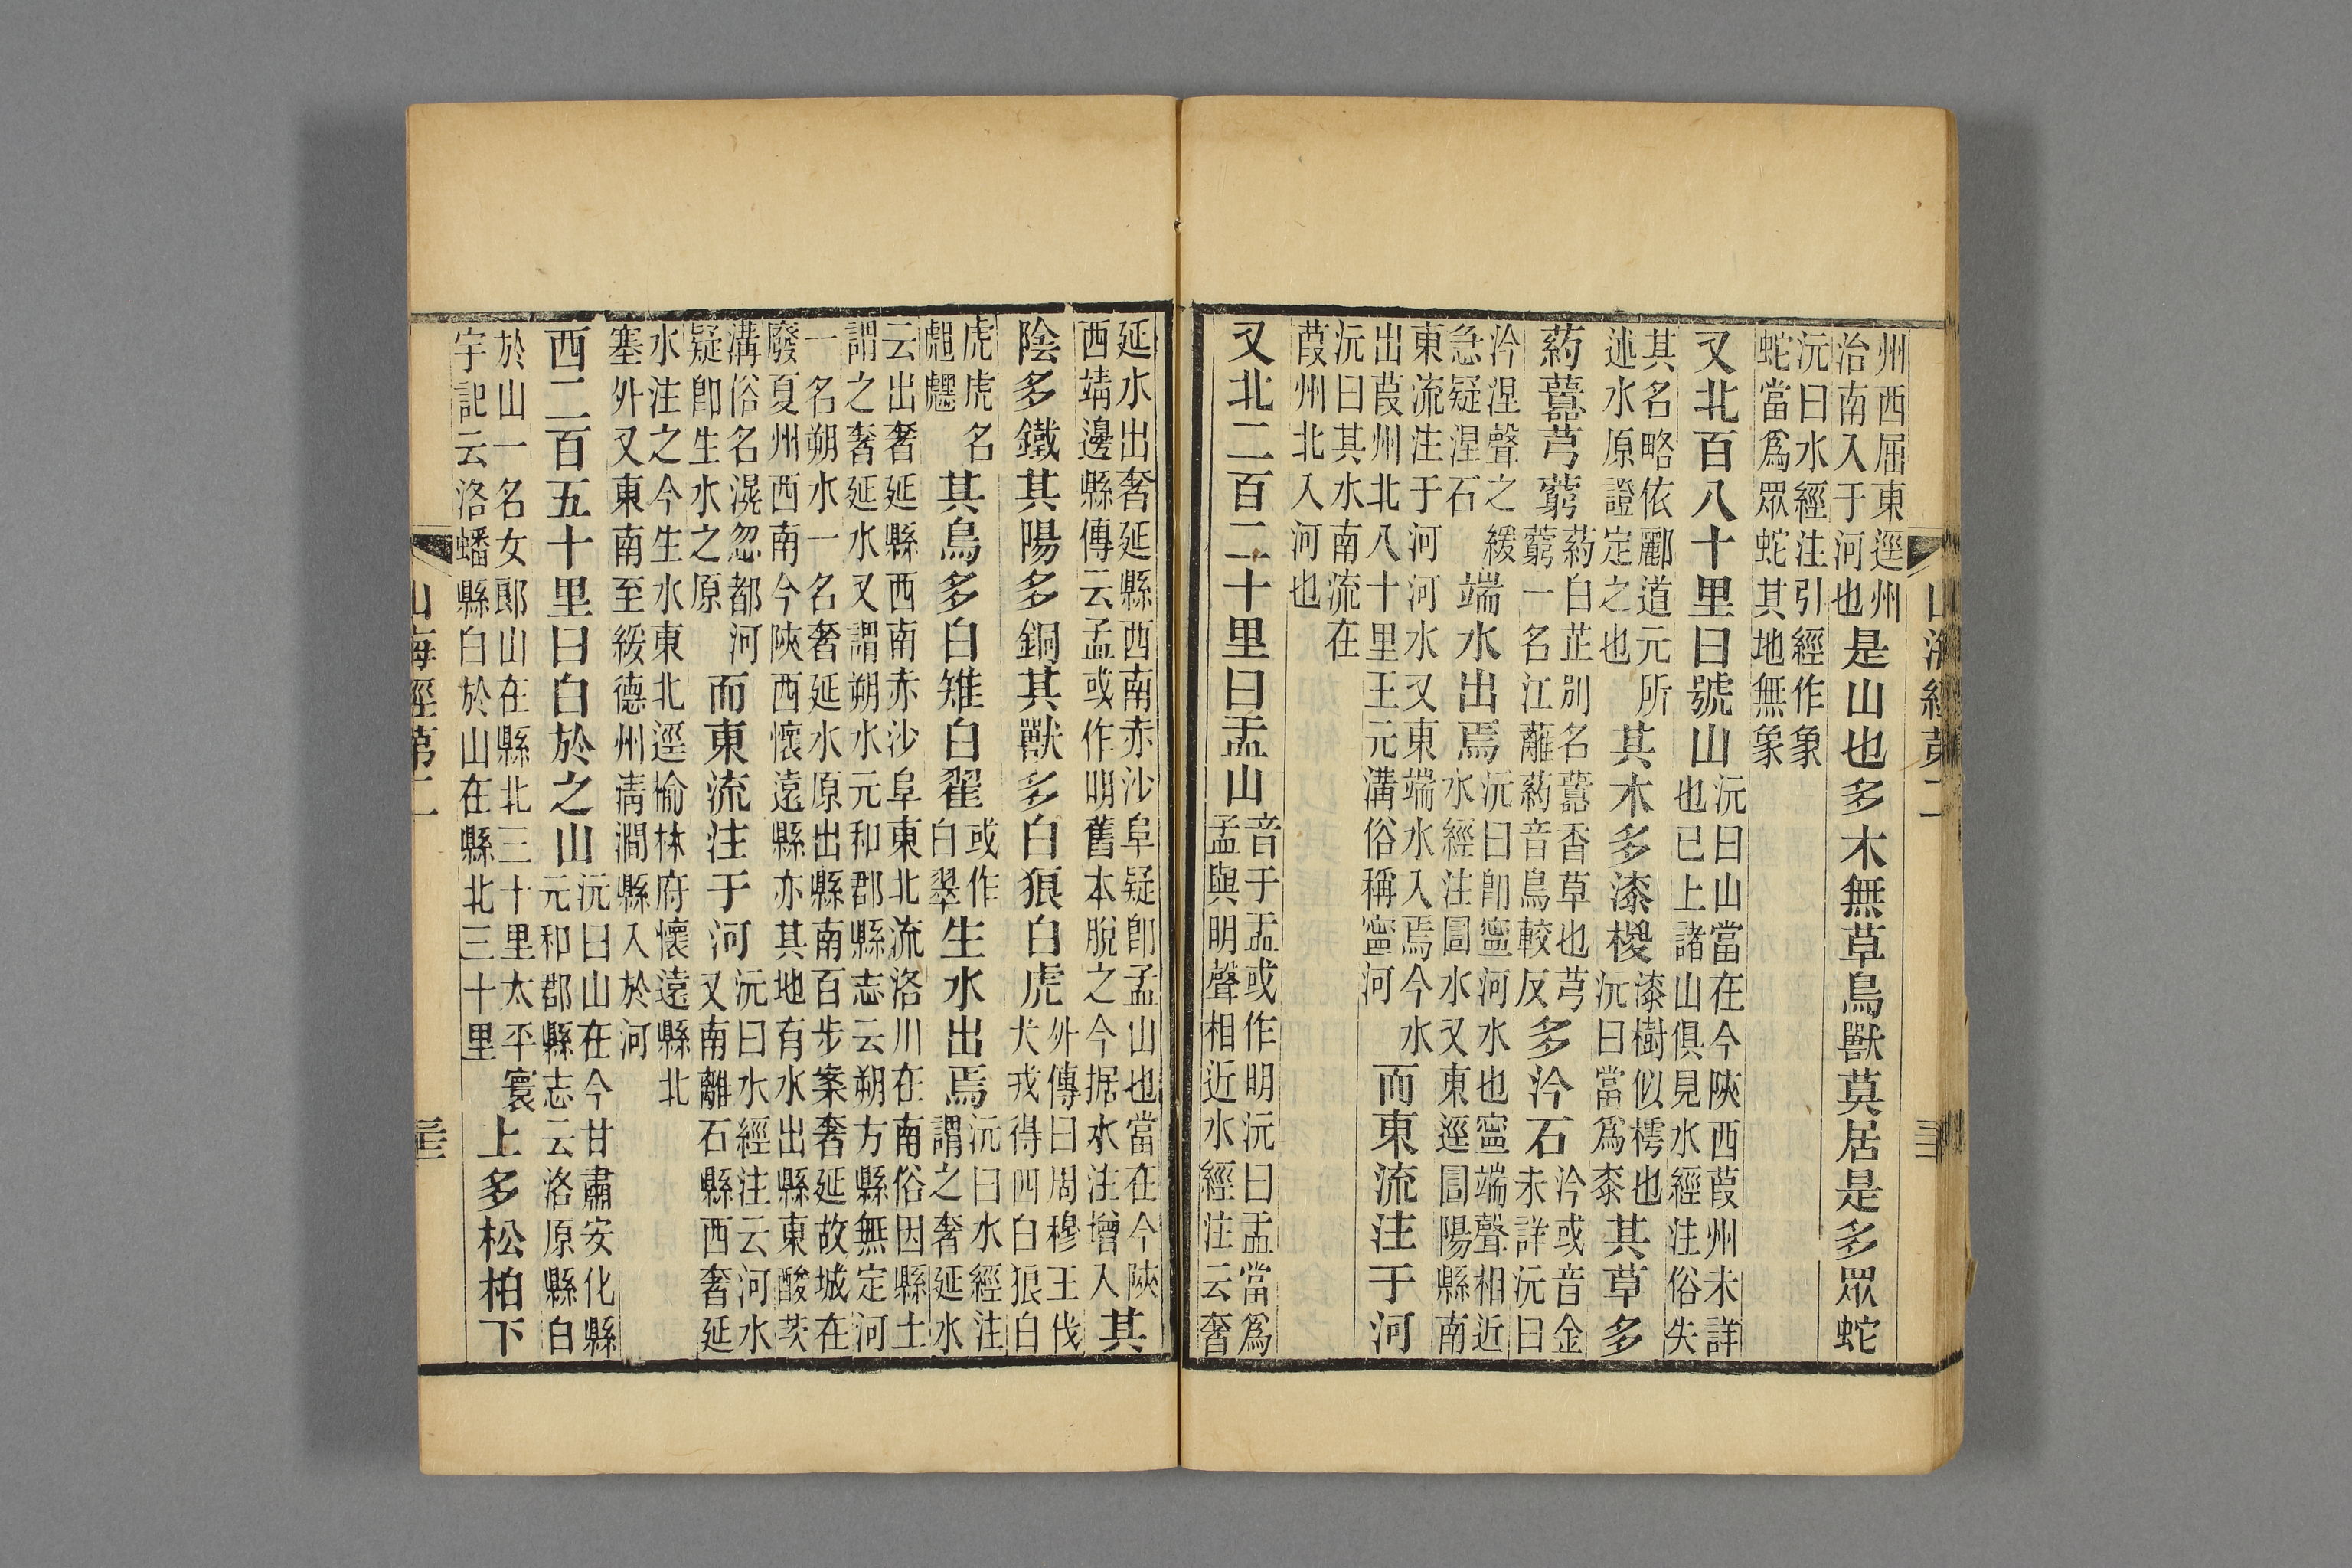 山海經第二
州西屈東逕州
治南入于河也
是山也多木無草鳥獸莫居是多眾蛇
沅曰水經注引經作象
蛇當爲眾蛇其地無象
又北百八十里曰號山
沅曰山當在今陝西葭州未詳
也已上諸山俱見水經注俗失
其名略依酈道元所
述水原證定之也
其木多漆椶
漆樹似樗也
沅曰當爲桼
其草多
葯虈芎藭
葯白芷別名虈香草也芎
藭一名江蘺葯音烏較反
多汵石
汵或音金
未詳沅曰
汵涅聲之緩
急疑涅石
端水出焉
沅曰卽寧河水也寧端聲相近
水經注圁水又東逕圁陽縣南
東流注于河河水又東端水入焉今水
出葭州北八十里王元溝俗稱寧河
而東流注于河
沅曰其水南流在
葭州北入河也
又北二百二十里曰盂山
音于盂或作明沅曰盂當爲
孟與明聲相近水經注云奢
延水出奢延縣西南赤沙阜疑卽孟山也當在今陝
西靖邊縣傳云孟或作明舊本脫之今据水注增入
其
陰多鐵其陽多銅其獸多白狼白虎
外傳曰周穆王伐
犬戎得四白狼白
虎虎名
甝
其鳥多白雉白翟
或作
白翠
生水出焉
沅曰水經注
謂之奢延水
云出奢延縣西南赤沙阜東北流洛川在南俗因縣土
謂之奢延水又謂朔水元和郡縣志云朔方縣無定河
一名朔水一名奢延水原出縣南百步案奢延故城在
廢夏州西南今陝西懷遠縣亦其地有水出縣東酸茨
溝俗名滉忽都河
疑卽生水之原
而東流注于河
沅曰水經注云河水
又南離石縣西奢延
水注之今生水東北逕榆林府懷遠縣北
塞外又東南至綏德州淸澗縣入於河
西二百五十里曰白於之山
沅曰山在今甘肅安化縣
元和郡縣志云洛原縣白
於山一名女郎山在縣北三十里太平寰
宇記云洛蟠縣白於山在縣北三十里
上多松柏下
山海經第二